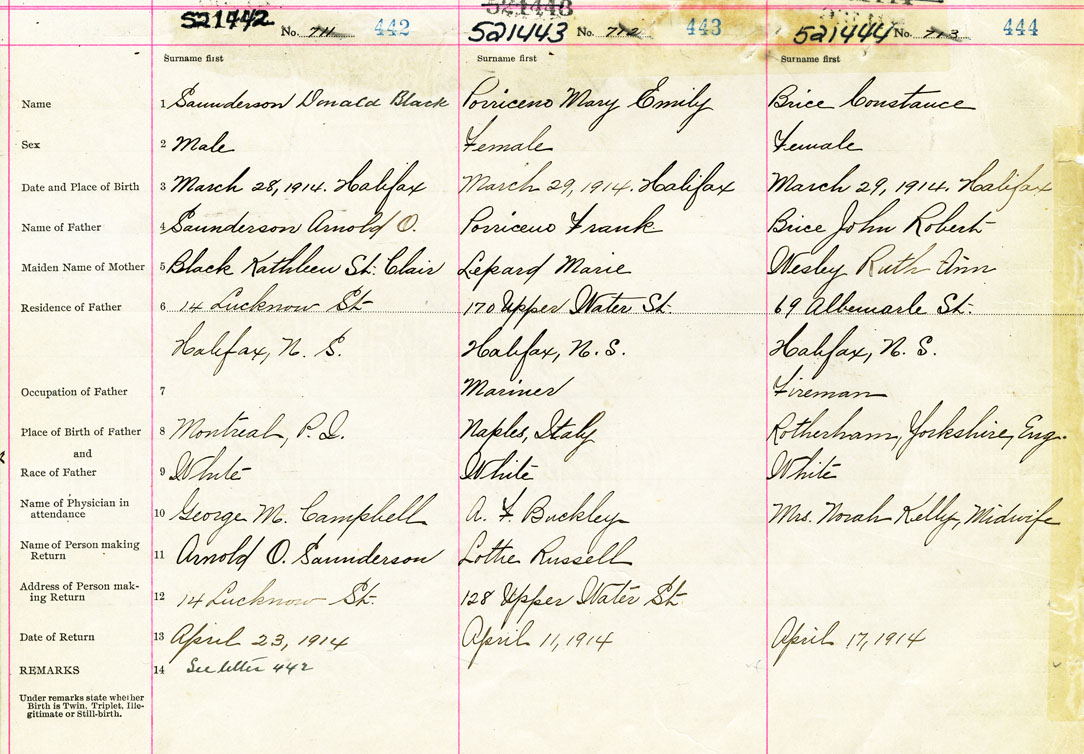 521442 No. 711 442 521443 No. 712 443 521444 No. 713 444
Surname first Surname first Surname first
Name 1 Saunderson Donald Black Porriceno Mary Emily Brice Constance
Sex 2 Male Female Female
Date and Place of Birth 3 March 28, 1914. Halifax March 29, 1914. Halifax March 29, 1914. Halifax
Name of Father 4 Saunderson Arnold O. Porriceno Frank Brice John Robert
Maiden Name of Mother 5 Black Kathleen St. Clair Lepard Marie Wesley Ruth Ann
Residence of Father 6 14 Lucknow St 170 Upper Water St. 69 Albemarle St.
Halifax, N. S. Halifax, N. S. Halifax, N. S.
Occupation of Father 7 Mariner Fireman
Place of Birth of Father 8 Montreal, P. Q. Naples, Italy Rotherham, Yorkshire, Eng.
and
Race of Father 9 White White White
Name of Physician in
attendance 10 George M. Campbell A. F. Buckley Mrs. Norah Kelly, Midwife
Name of Person making
Return 11 Arnold O. Saunderson Lottie Russell
Address of Person mak-
ing Return 12 14 Lucknow St. 128 Upper Water St
Date of Return 13 April 23, 1914 April 11, 1914 April 17, 1914
REMARKS 14 See letter 442
Under remarks state whether
Birth is Twin, Triplet, Ille-
gitimate or Still-birth.